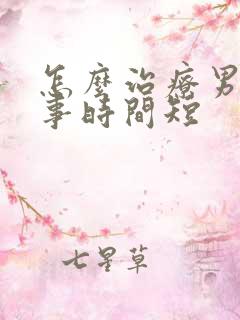 怎麼治療男
事時間短
七星草